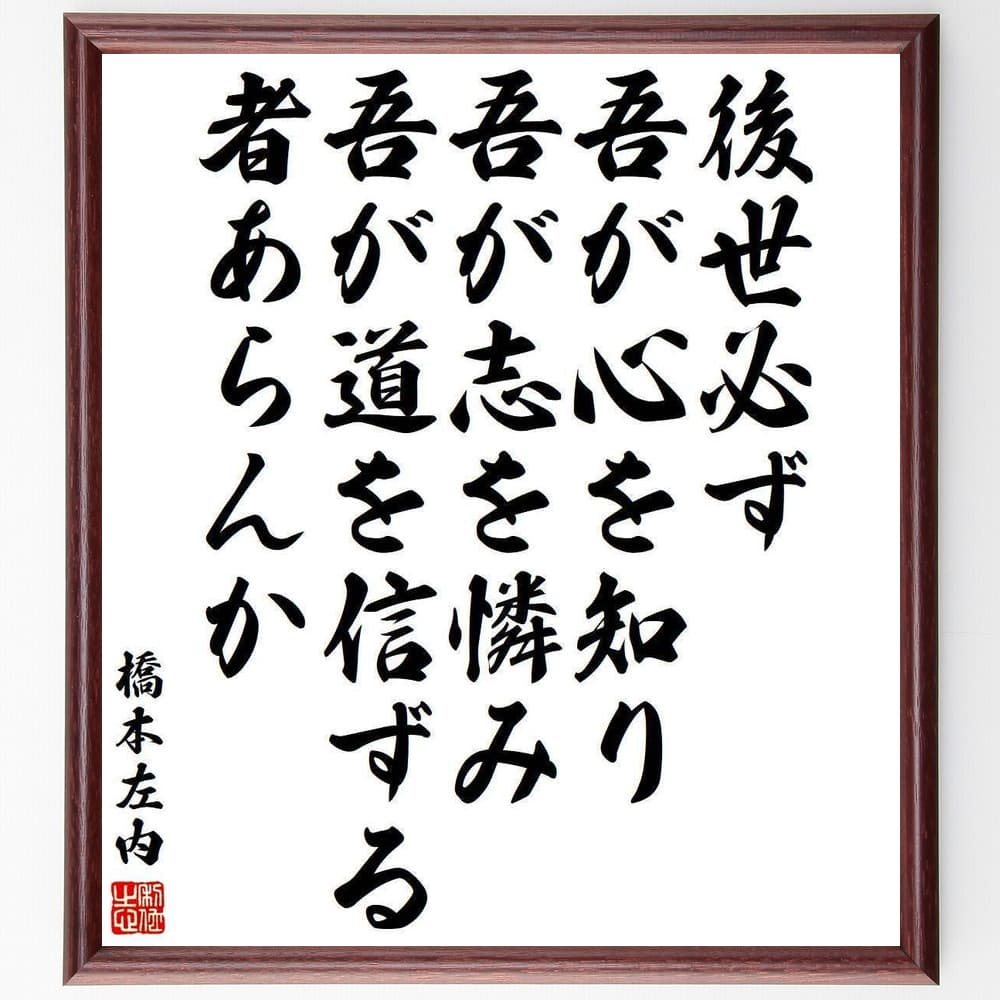 後世必ず
吾が心を知り
吾が志を憐み
吾が道を信ずる
者あらんか
橋本左内